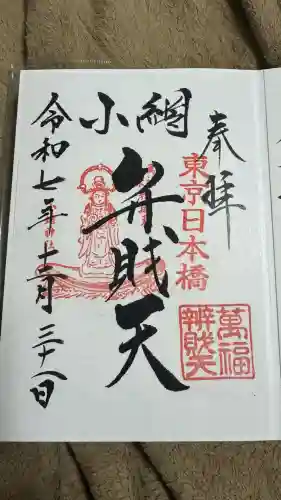 奉拝
東京日本橋
小網
弁財天
萬福
辨財天
令和七年十二月三十一日